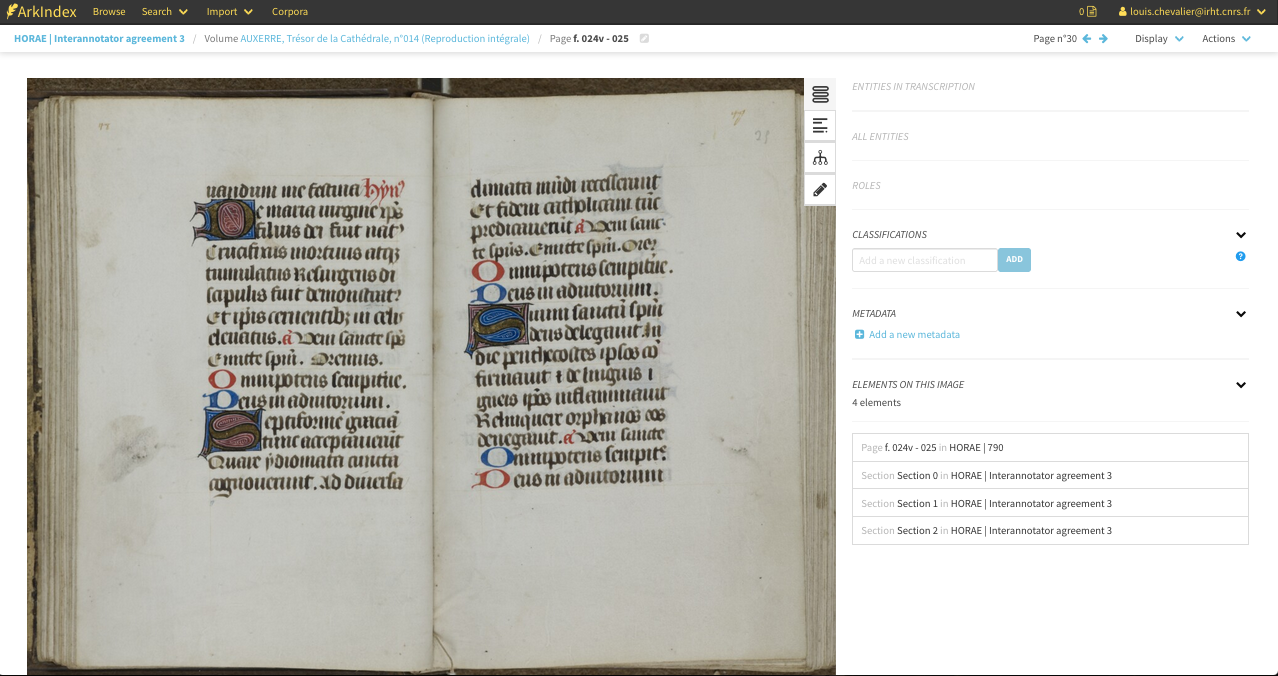 ArkIndex Browse Search Import Corpora 0 louis.chevalier@irht.cnrs.fr
HORAE | Interannotator agreement 3 / Volume AUXERRE, Trésor de la Cathédrale, n°014 (Reproduction intégrale) / Page f. 024v - 025 Page n°30 Display Actions
uandum me festina hỹn'
De maria uirgine ip̃s
filius dei fuit nat'
Crucifixus mortuus atqz
tumulatus Resurgens di
sapulis fuit demonstrat'
Et ip̃is cernentibz in celis
eleuatus. a Veni sancte sp̃s
Emitte sp̃m. Oremus.
Omnipotens sempit̃ne.
Deus in adiutorium.
Septiformẽ graciã
tunc acceptauerut
Quare ydiomata cuncta
cognouerunt. Ad diuersa
climata mũdi recesserunt
Et fidem catholicam tũc
predicauerũt a Veni sanc
te sp̃us. Emitte sp̃m. Orẽ
Omnipotens sempit̃ne.
Deus in adiutorium.
Suum sanctũ sp̃m
deus delegauit In
die penthecostes ip̃sos cõ
firmauit et de linguis i
gneis ip̃os inflammauit
Relinquere orphanos eos
denegauit. a Veni sancte
Omnipotens sempit̃
Deus in adiutorium
ENTITIES IN TRANSCRIPTION
ALL ENTITIES
ROLES
CLASSIFICATIONS
Add a new classification ADD
METADATA
Add a new metadata
ELEMENTS ON THIS IMAGE
4 elements
Page f. 024v - 025 in HORAE | 790
Section Section 0 in HORAE | Interannotator agreement 3
Section Section 1 in HORAE | Interannotator agreement 3
Section Section 2 in HORAE | Interannotator agreement 3